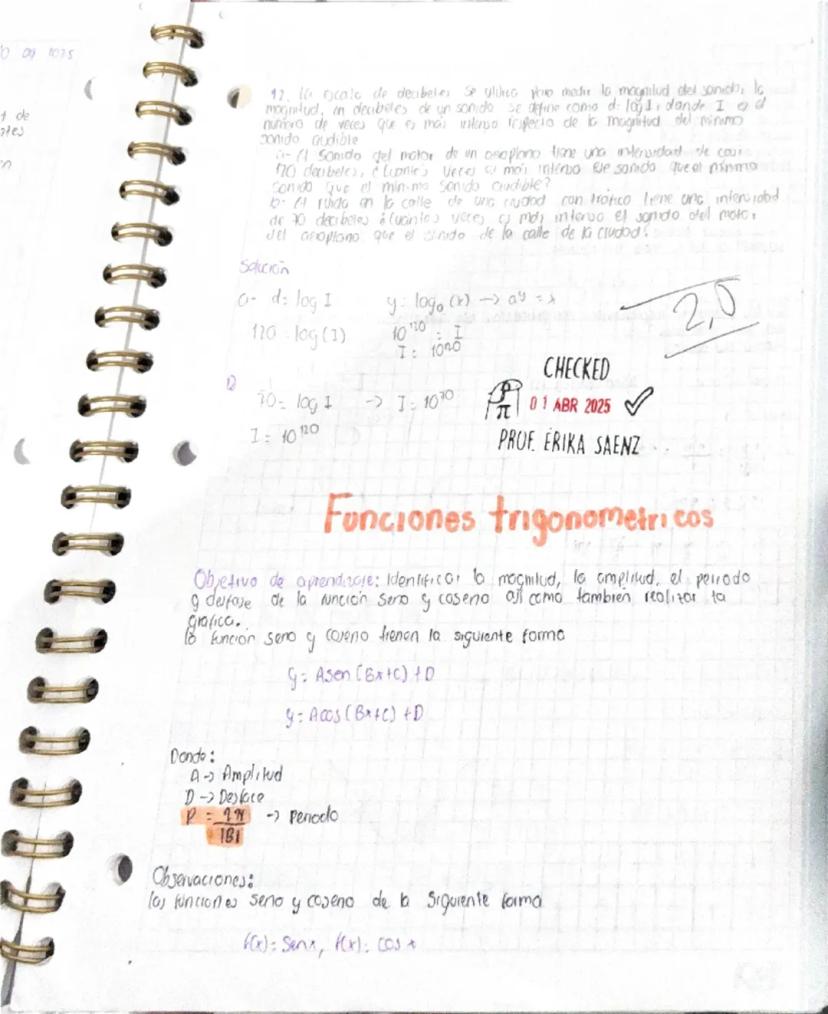 12. La escala de decibeles se utiliza para medir la magnitud del sonido, la
magnitud, en decibeles de un sonido se define como d: log I, donde I es el
numero de veces que es más intenso respecto de la magnitud del minimo
sonido audible
a- El sonido del motor de un aeroplano tiene una intensidad de casi
120 decibeles, ¿cuántas veces es más intenso ese sonido que el minimo
sonido que el minimo sonido audible?
b- El ruido en la calle de una ciudad con tráfico tiene una intensidad
de 70 decibeles ¿cuantas veces es más intenso el sonido del motor
del aeroplano que el sonido de la calle de la ciudad?
Solución
a- d= log I y= log_a (x) → a^y = x
120 = log(I) 10^120 = I
I = 10^120
2,0
CHECKED
70 = log I → I = 10^70
01 ABR 2025
I = 10^120
PROF. ERIKA SAENZ
Funciones trigonometricas
Objetivo de aprendizaje: Identificar la magnitud, la amplitud, el periodo
y desfase de la función seno y coseno así como tambien realizar la
grafica.
la función seno y coseno tienen la siguiente forma
y= Asen(Bx+C)+D
y= Acos(Bx+C)+D
Donde:
A → Amplitud
D → Desface
P = 2π/|B| → Periodo
Observaciones:
las funciones seno y coseno de la siguiente forma
f(x)= Senx, f(x)= cos x